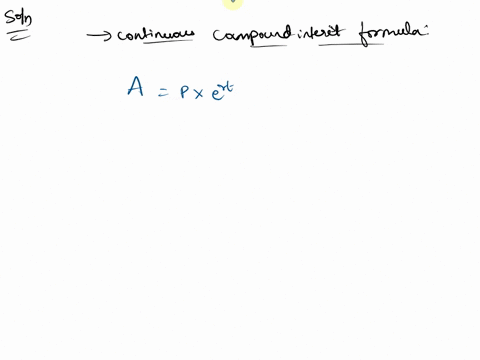 Soln
→ continuous compound interit formula:
A = P × e^rt